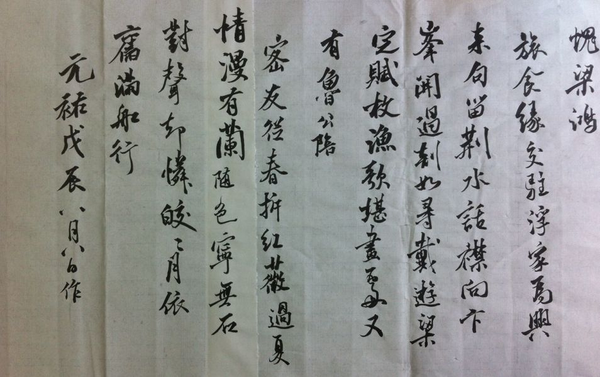 愧梁鴻
旅食緣交駐浮家爲興
来句留荆水話襟向卞
峯開過剡如尋戴遊梁
定賦枚漁歌堪畫處又
有魯公陪
密友從春拆紅薇過夏
情漫有蘭隨色寧無石
對聲却憐皎々月依
舊滿船行
元祐戊辰八月八日作